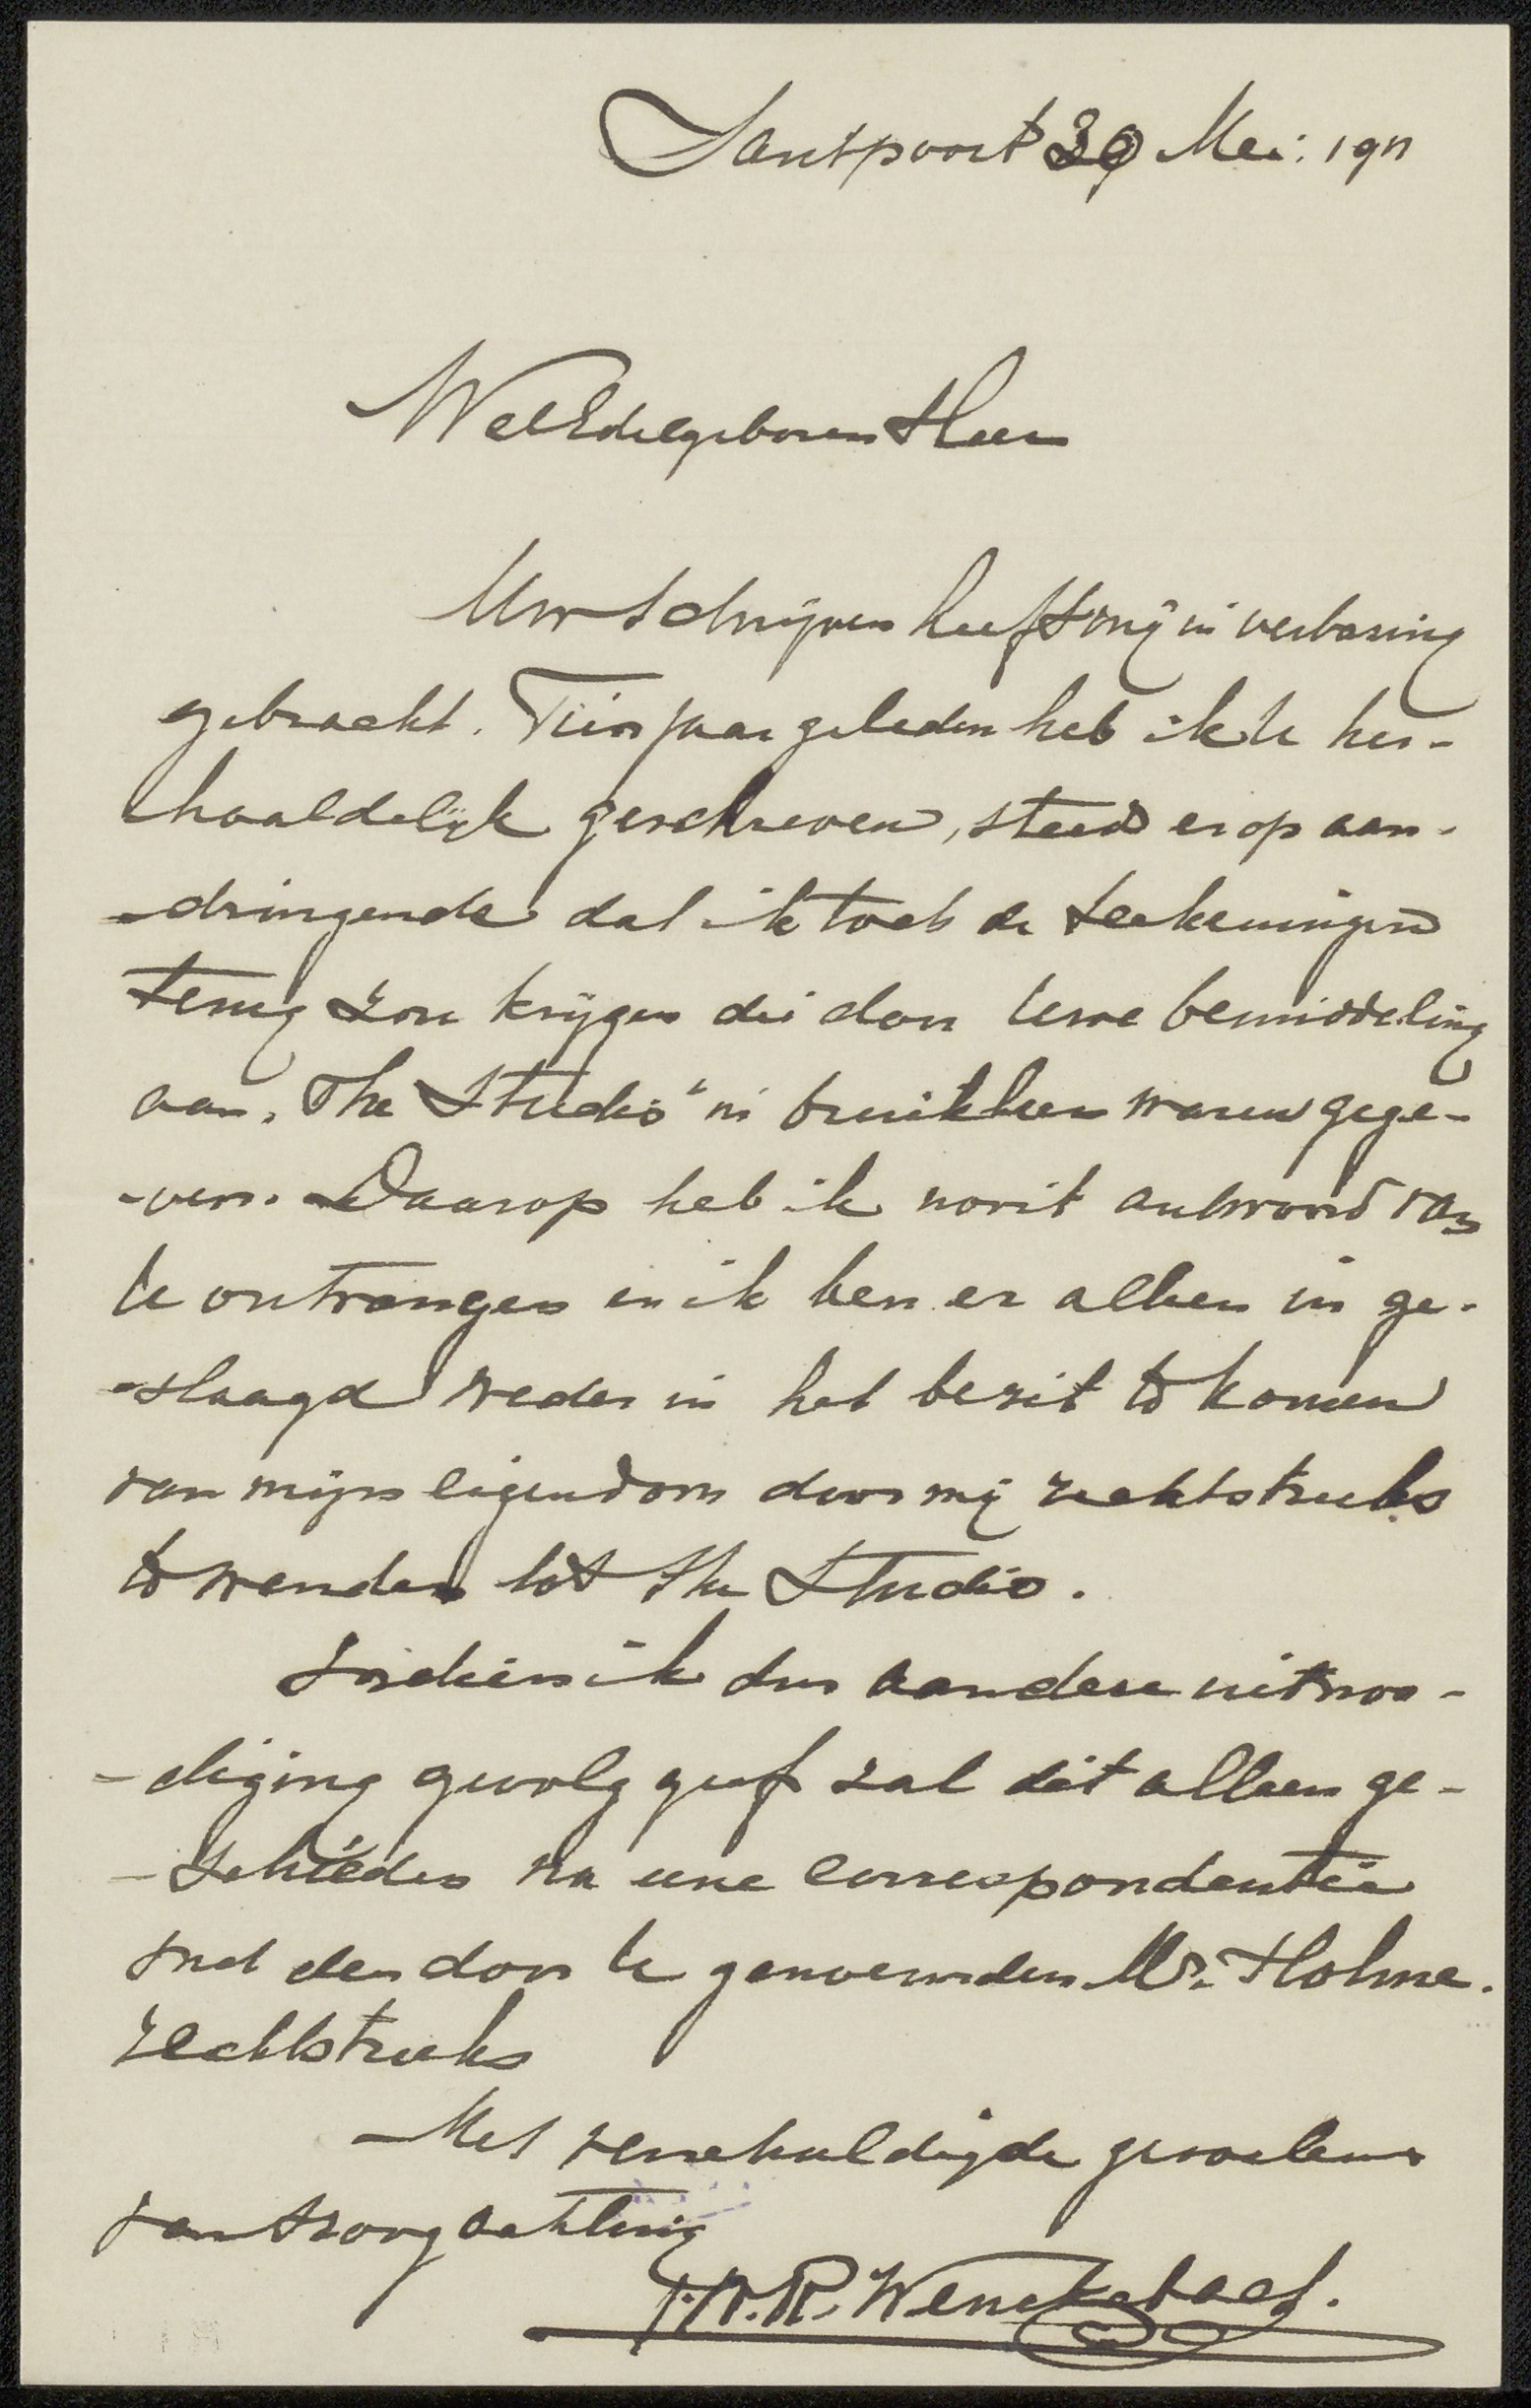 Santpoort 30 Mei. 1911
WelEdelgeboren Heer
Uw schrijven heeft mij in verbazing
gebracht. Tien jaar geleden heb ik U her-
haaldelijk geschreven, steeds er op aan-
-dringende dat ik toch de teekeningen
terug zou krijgen die door Uwe bemiddeling
aan "The Studio" in bruikleen waren gege-
-ven. Daarop heb ik nooit antwoord van
U ontvangen en ik ben er alleen in ge-
-slaagd weder in het bezit te komen
van mijn eigendom door mij rechtstreeks
te wenden tot The Studio.
Indien ik dus aan deze uitnoo-
-diging gevolg geef zal dit alleen ge-
-schieden na eene correspondentie
met den door U genoemden Mr. Holme.
rechtstreeks
Met verschuldigde gevoelens
van hoogachting
L.W.R. Wenckebach.